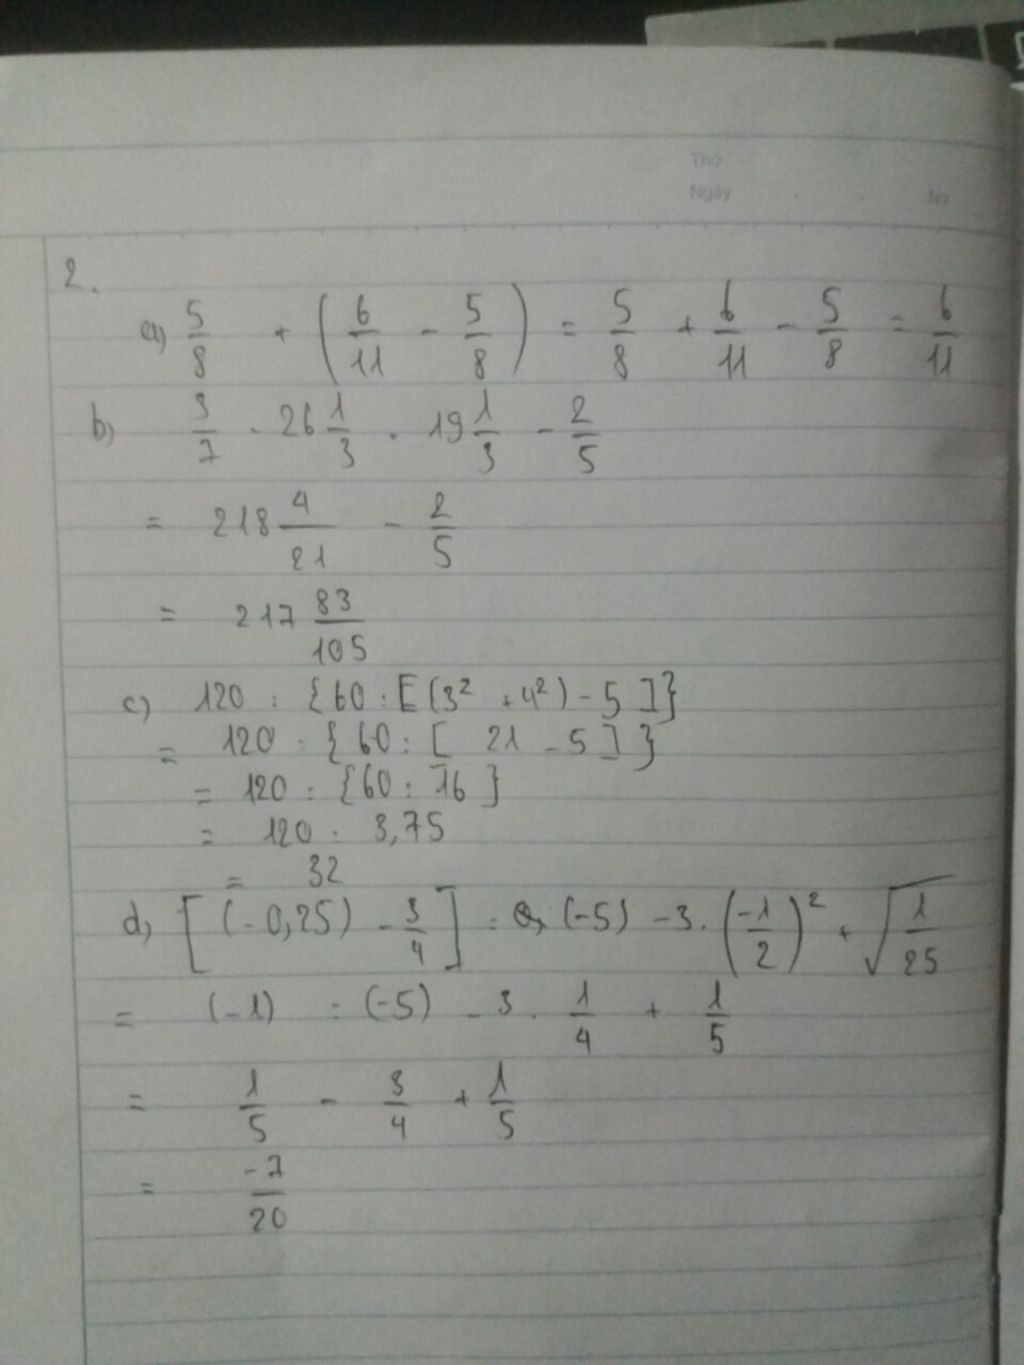 Thứ
Ngày No
2.
a) 5/8 + (6/11 - 5/8) = 5/8 + 6/11 - 5/8 = 6/11
b) 3/7 . 26 1/3 . 19 1/3 - 2/5
= 218 4/21 - 2/5
= 217 83/105
c) 120 : {60 : [(3² + 4²) - 5]}
= 120 : {60 : [21 - 5]}
= 120 : {60 : 16}
= 120 : 3,75
= 32
d) [(-0,25) - 3/4] : (-5) - 3 . (-1/2)² + √(1/25)
= (-1) : (-5) - 3 . 1/4 + 1/5
= 1/5 - 3/4 + 1/5
= -7/20